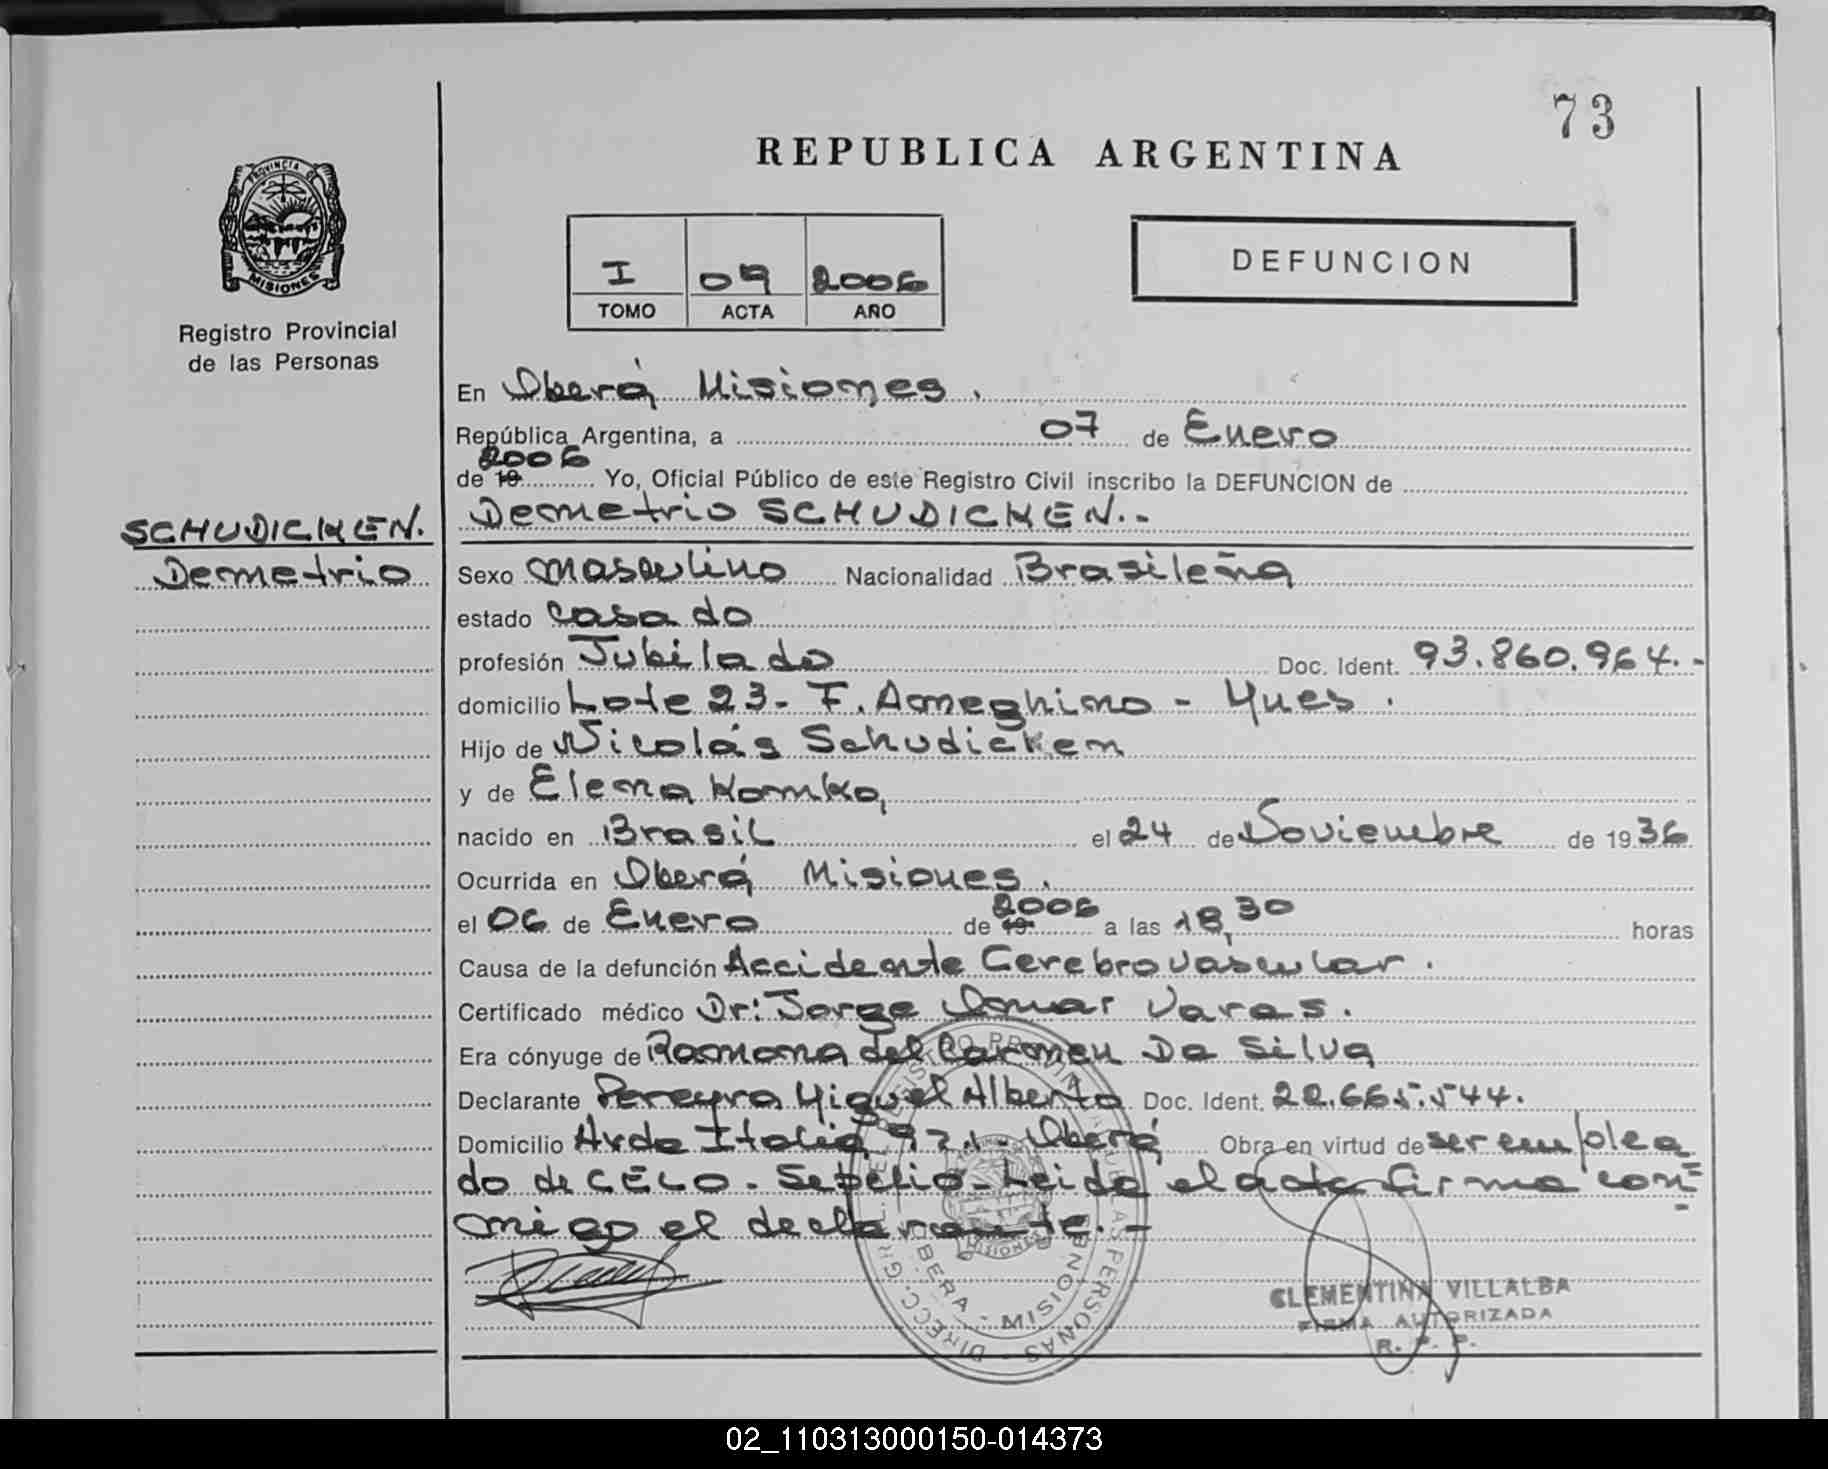 73
REPUBLICA ARGENTINA
PROVINCIA DE
MISIONES
Registro Provincial
de las Personas
I 09 2006
TOMO ACTA AÑO
DEFUNCION
En Oberá Misiones.
República Argentina, a 07 de Enero
2006
de 19 Yo, Oficial Público de este Registro Civil inscribo la DEFUNCION de
Demetrio SCHUDICKEN.-
SCHUDICKEN.
Demetrio
Sexo masculino Nacionalidad Brasileña
estado casado
profesión Jubilado Doc. Ident. 93.860.964.-
domicilio Lote 23- F. Ameghino -
Hijo de Nicolás Schudicken
y de Elena Komka
nacido en Brasil el 24 de Noviembre de 1936
Ocurrida en Oberá Misiones.
el 06 de Enero de 19 2006 a las 18,30 horas
Causa de la defunción Accidente Cerebrovascular.
Certificado médico Dr: Jorge Omar Varas.
Era cónyuge de Ramona del Carmen Da Silva
Declarante Pereyra Miguel Alberto Doc. Ident. 22.665.544.
Domicilio Avda Italia - Oberá Obra en virtud de ser emplea
do de CELO. Sepelio- Leida el acta firma con=
migo el declarante.-
DIRECC. GRL. DEL REGISTRO PROVINCIAL DE LAS PERSONAS
OBERA - MISIONES
MISIONES
CLEMENTINA VILLALBA
FIRMA AUTORIZADA
R. P. P.
02_110313000150-014373